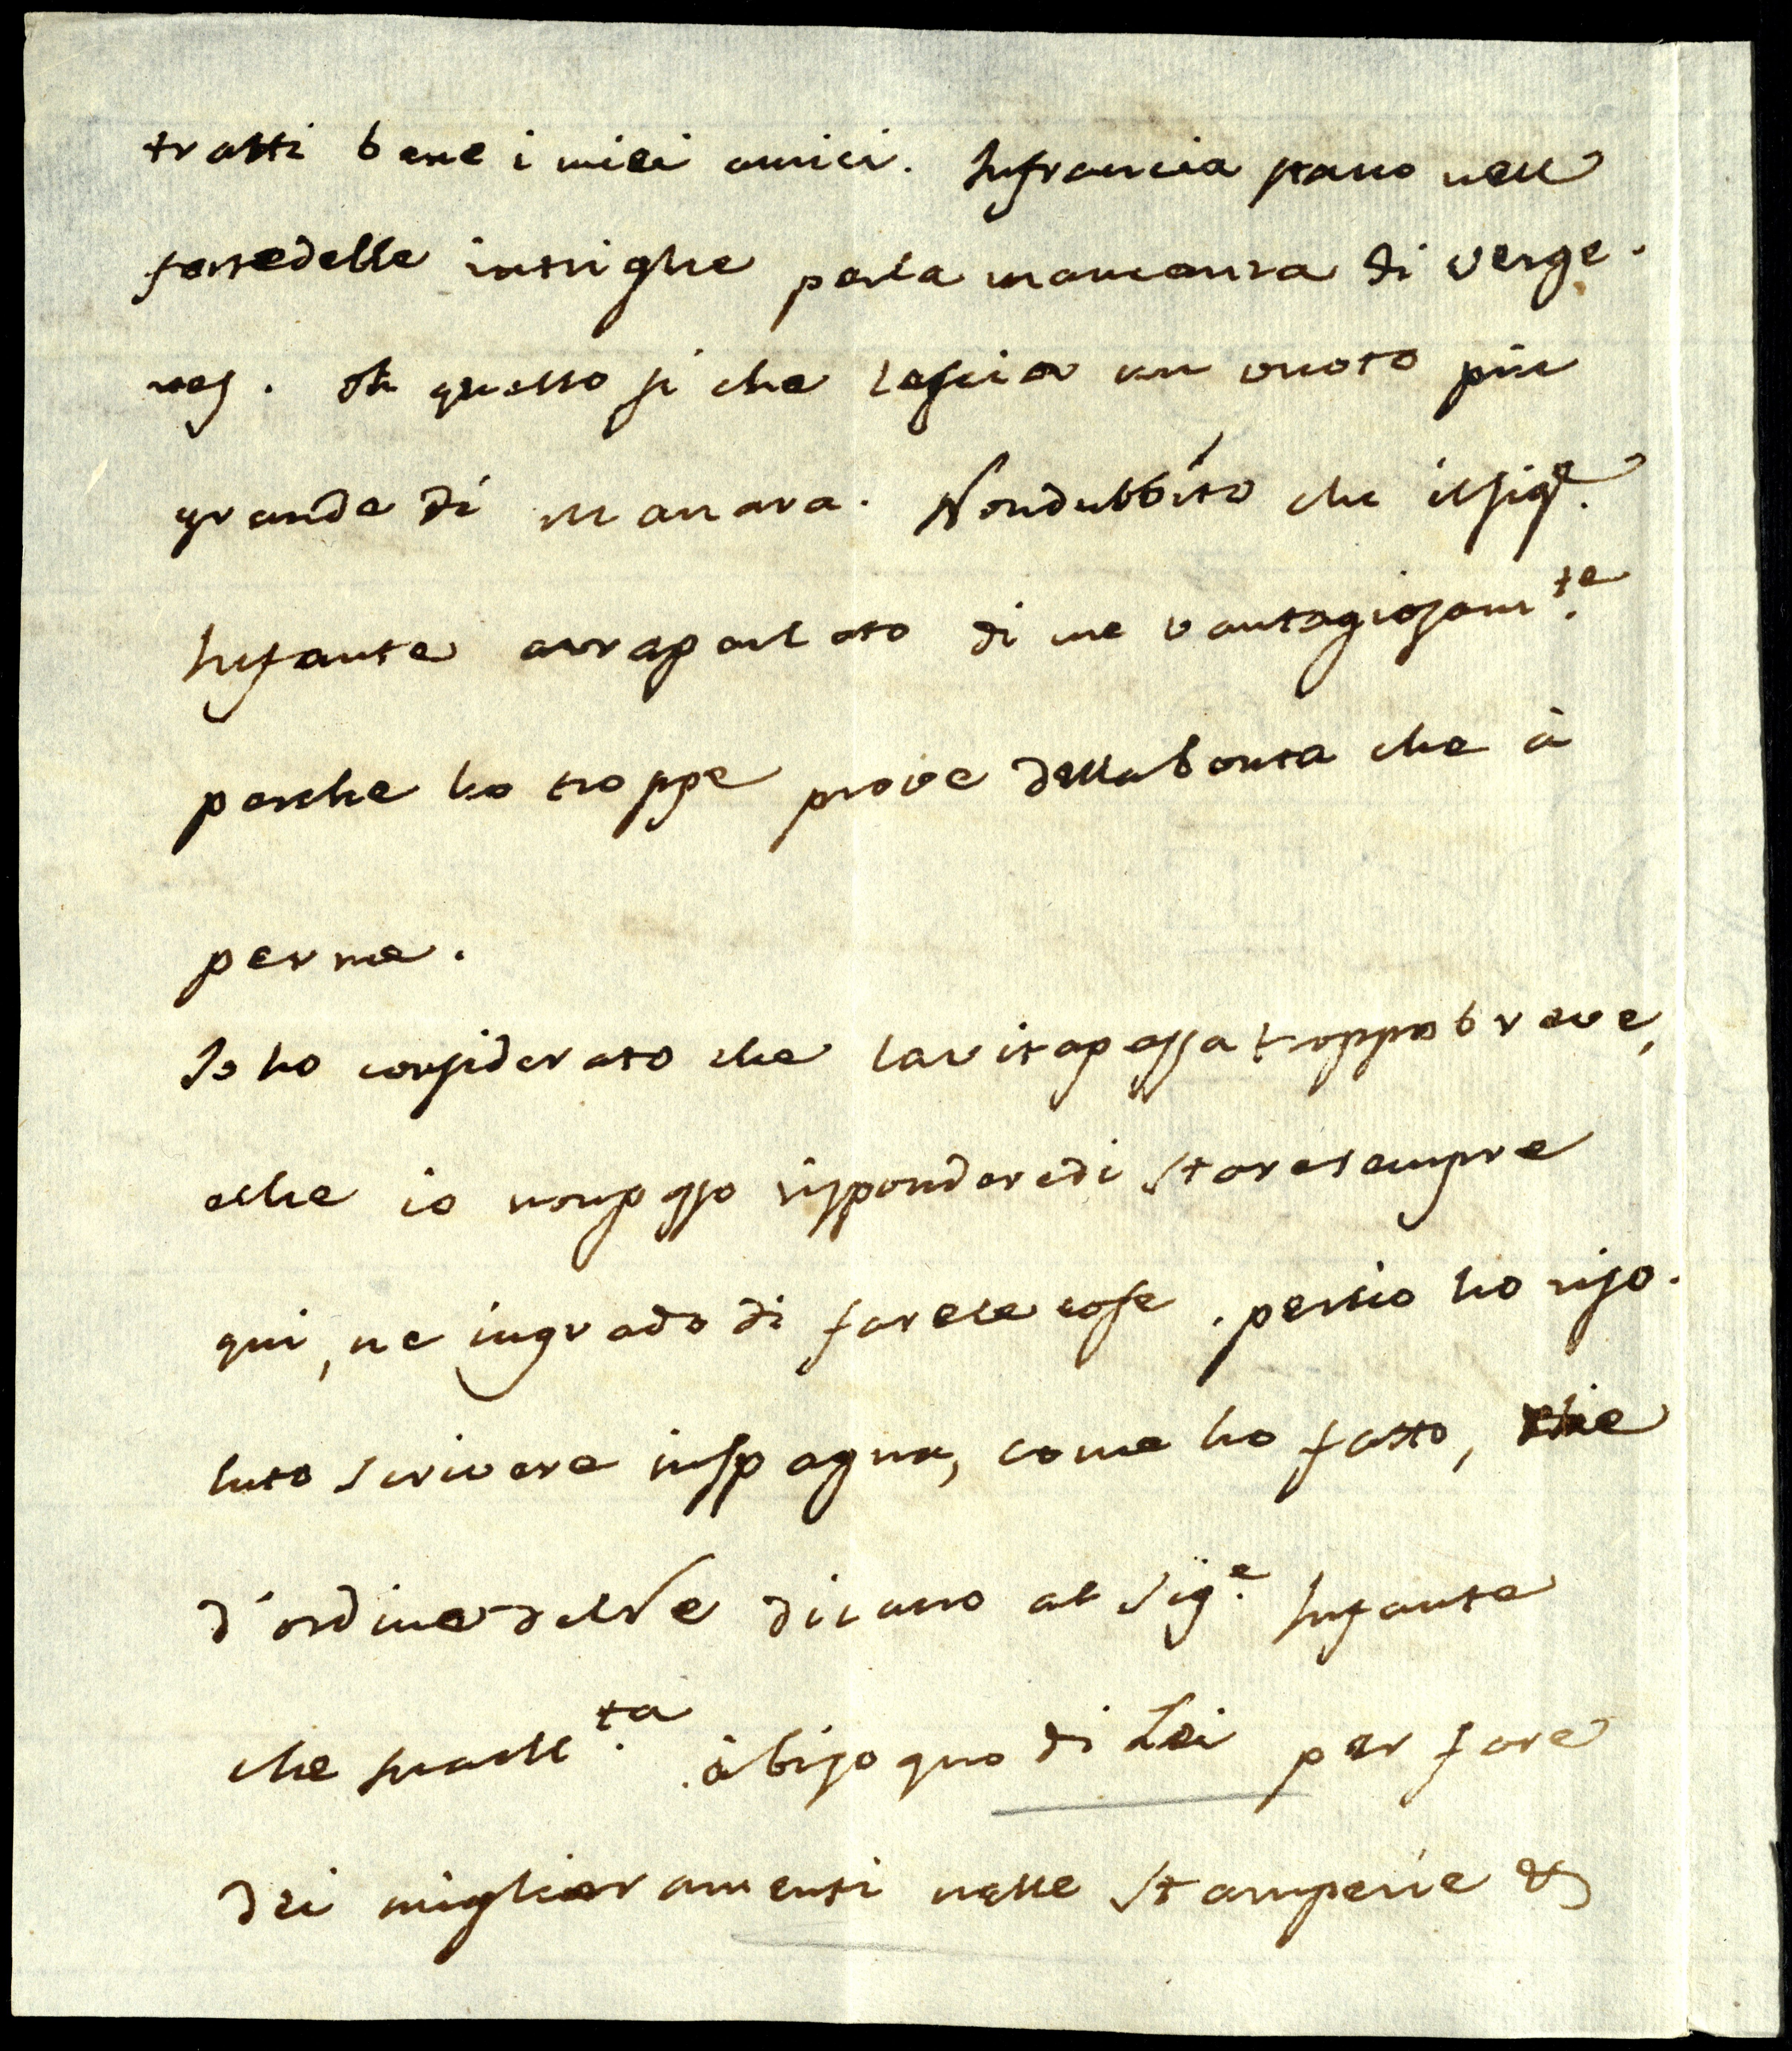 tratti bene i miei amici. Infrancia stano nell
fortedelle intrighe perla mancanza di Verge.
nes. Oh questo si che lascia un vuoto più
grande di Manara. Nondubbito che ilsig.e
Infante avraparlato di me vantagiosam.te
perche ho troppe prove dellabonta che à
perme.
Io ho considerato che lavitapassatroppobreve,
eche io nonposso risponderedi staresempre
qui, ne ingrado di farele cose. perciò ho riso.
luto scrivere inspagna, come ho fatto, che
d'ordine delRe dicano al Sig.e Infante
che suaM.ta àbisogno di Lei per fare
dei miglioramenti nelle stamperie &